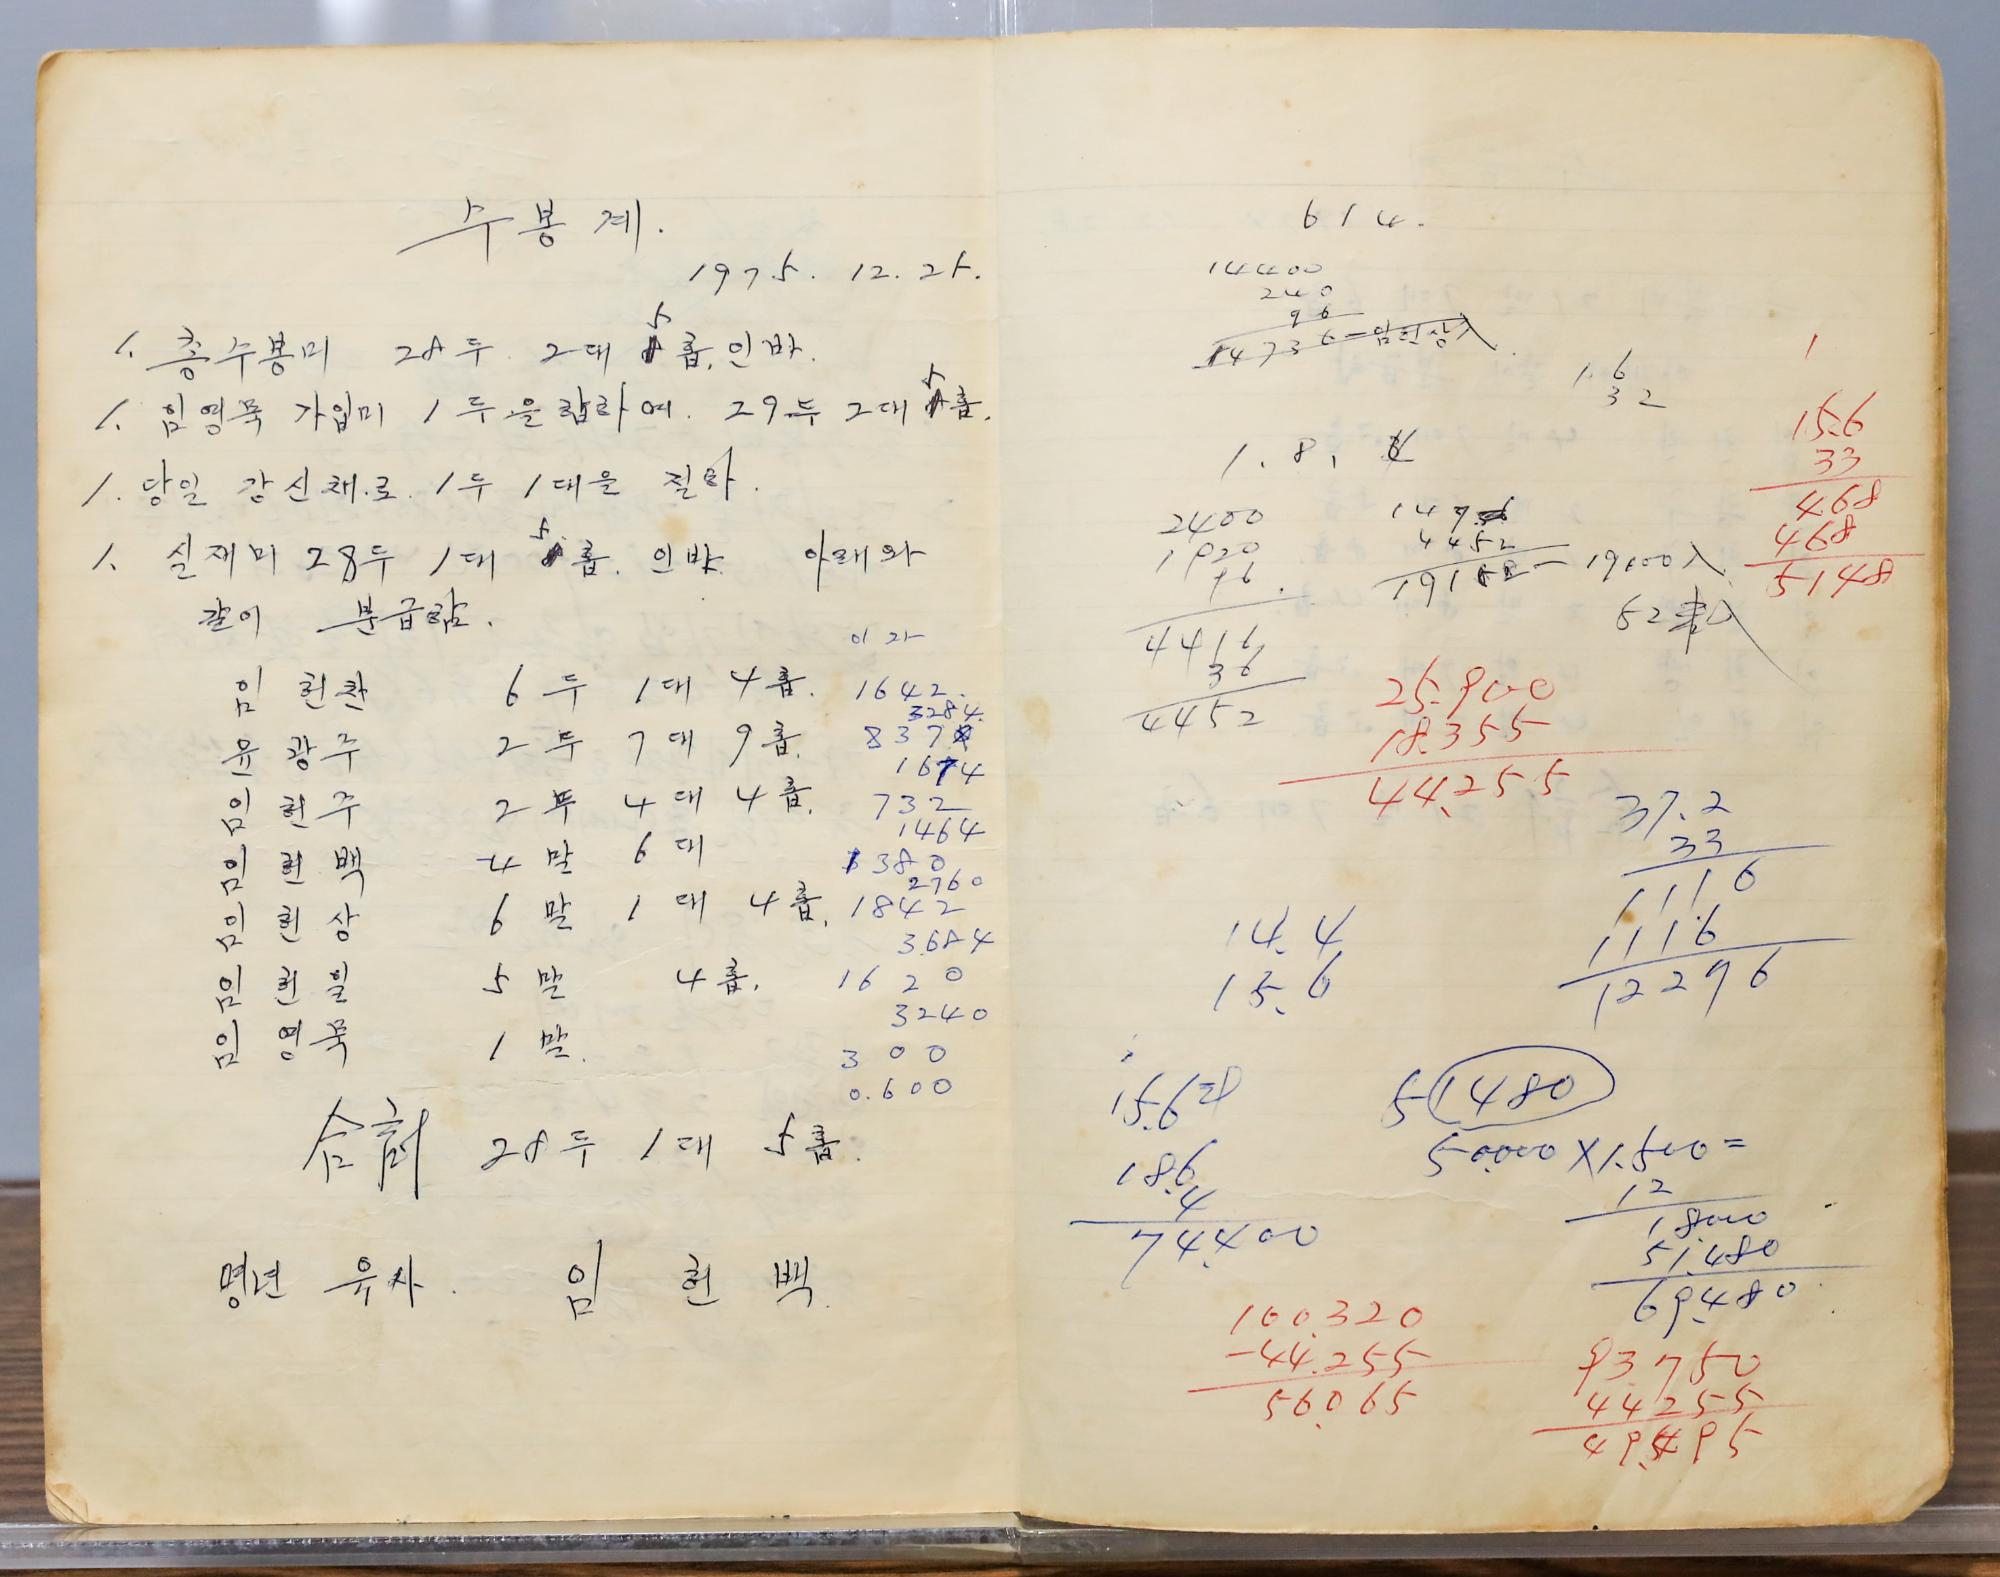 수봉계.
1975. 12. 25.
1. 총수봉미 28두 2대 5홉.인바.
1. 임영묵 가입미 1두을 합하여. 29두 2대 5홉.
1. 당일 강신채.로. 1두 1대을 질하.
1. 실재미 28두 1대 5홉. 인바. 아래와
같이 분급함.
이자
임헌찬 6두 1대 4홉. 1642.
3284.
윤광주 2두 7대 9홉. 837
1674
임헌주 2두 4대 4홉. 732
1464
임헌백 4말 6대 1380
2760
임헌상 6말 1대 4홉. 1842
3684
임헌일 5말 4홉. 1620
3240
임영묵 1말. 300
0.600
合計 28두 1대 5홉.
명년 유사. 임헌백.
614.
14400
240
96
14736-임헌상入
16
32
1
15.6
33
468
468
5148
1. 8,
2400
1920
96.
4416
36
4452
4452
19000入
25.900
18.355
44.255
37.2
33
1116
1116
12296
14.4
15.6
15.6
186
4
74.400
51480
50.000×1.500=
12
18000
51.480
69.480
100.320
-44.255
56.065
93.750
44255
49495